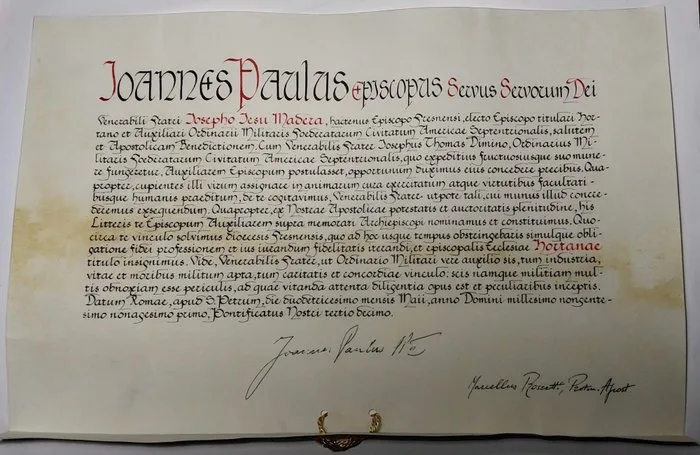 Joannes Paulus Episcopus Servus Servorum Dei
Venerabili Fratri Josepho Jesu Madera, hactenus Episcopo Fresnensi, electo Episcopo titulari Hor-
tano et Auxiliari Ordinarii Militaris Foederatarum Civitatum Americae Septentrionalis, salutem
et Apostolicam Benedictionem. Cum Venerabilis Frater Josephus Thomas Dimino, Ordinarius Mi-
litaris Foederatarum Civitatum Americae Septentrionalis, quo expeditius fructuosiusque suo mune-
re fungeretur, Auxiliarem Episcopum postulasset, opportunum duximus eius concedere precibus. Qua-
propter, cupientes illi virum assignare in animarum cura exercitatum atque virtutibus facultati-
busque humanis praeditum, de te cogitavimus, Venerabilis Frater, utpote tali, cui munus illud conce-
deremus exsequendum. Quapropter, ex Nostrae Apostolicae potestatis et auctoritatis plenitudine, his
Litteris te Episcopum Auxiliarem supra memorati Archiepiscopi nominamus et constituimus. Quo-
circa te vinculo solvimus dioecesis Fresnensis, quo ad hoc usque tempus obstringebaris simulque obli-
gatione fidei professionem et ius iurandum fidelitatis iterandi, et episcopalis Ecclesiae Hortanae
titulo insignimus. Vide, Venerabilis Frater, ut Ordinario Militari vere auxilio sis, tum industria,
vitae et moribus militum apta, tum caritatis et concordiae vinculo: scis namque militiam mul-
tis obnoxiam esse periculis, ad quae vitanda attenta diligentia opus est et peculiaribus inceptis.
Datum Romae, apud S. Petrum, die duodetricesimo mensis Maii, anno Domini millesimo nongente-
simo nonagesimo primo, Pontificatus Nostri tertio decimo.
Joannes Paulus II
Marcellus Rossetti, Proton. Apost